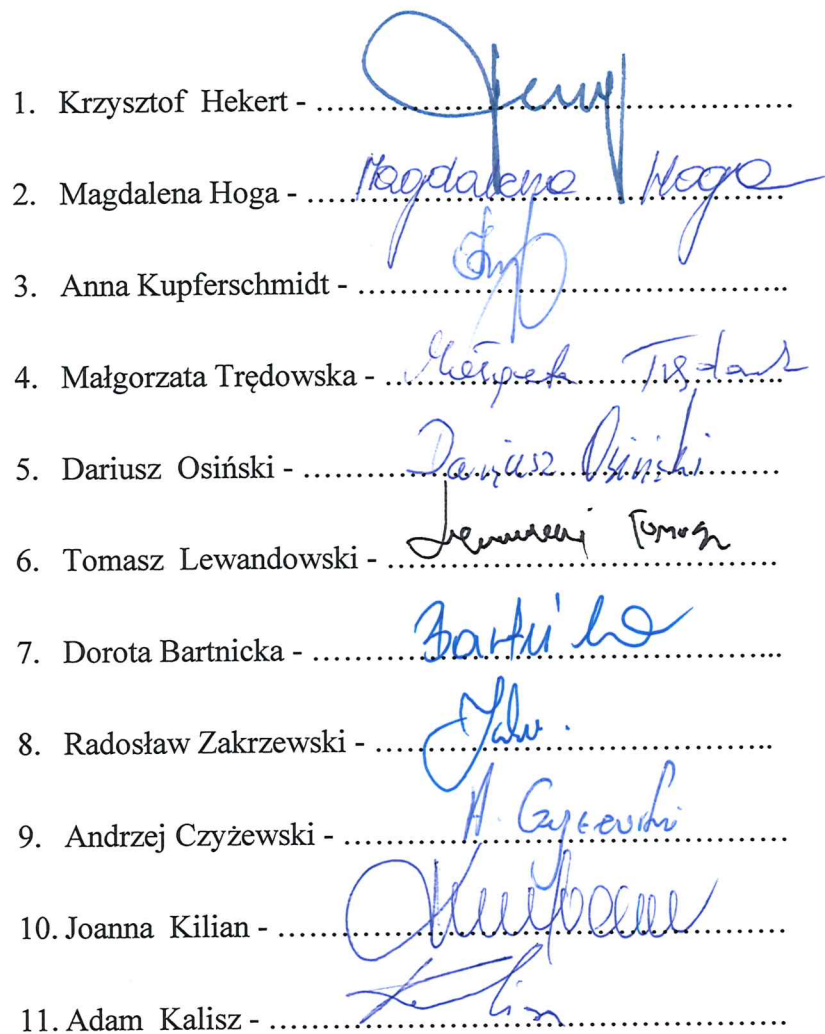 1. Krzysztof Hekert - ................................................
2. Magdalena Hoga - Magdalena Hoga
3. Anna Kupferschmidt - ............................................
4. Małgorzata Trędowska - ........................................
5. Dariusz Osiński - Dariusz Osiński
6. Tomasz Lewandowski - ........................................
7. Dorota Bartnicka - ................................................
8. Radosław Zakrzewski - ........................................
9. Andrzej Czyżewski - A. Czyżewski
10. Joanna Kilian - ....................................................
11. Adam Kalisz - ....................................................